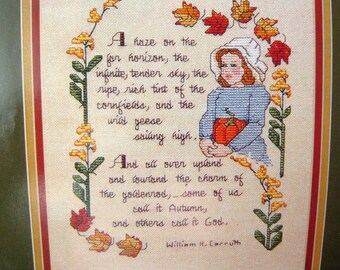 A haze on the
far horizon, the
infinite, tender sky, the
ripe, rich tint of the
cornfields, and the
wild geese
sailing high.
And all over upland
and lowland the charm of
the goldenrod,_some of us
call it Autumn,
and others call it God.
William H. Carruth